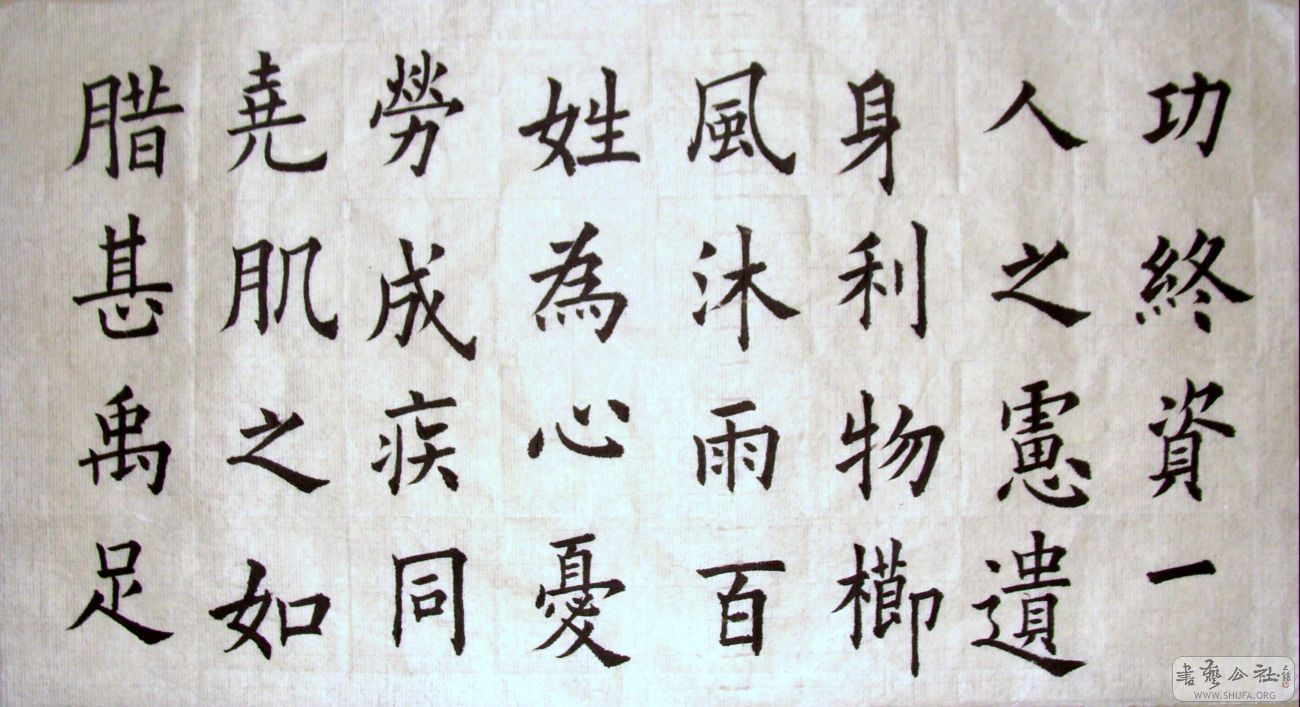 功終資一
人之慮遺
身利物櫛
風沐雨百
姓為心憂
勞成疾同
堯肌之如
腊甚禹足
書藝公社
WWW.SHUFA.ORG